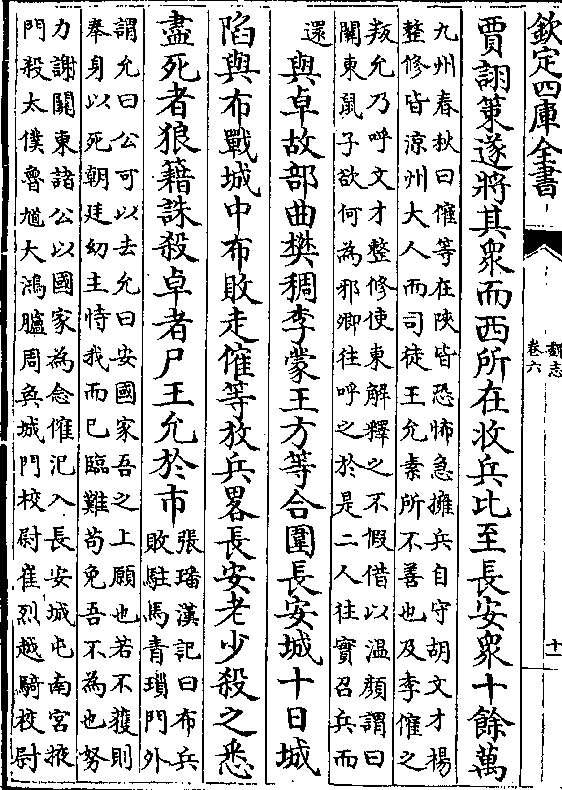 欽定四庫全書
魏志
卷六
十
賈詡策遂將其衆而西所在收兵比至長安衆十餘萬
九州春秋曰傕等在陜皆恐怖急擁兵自守胡文才楊
整修皆涼州大人而司徒王允素所不善也及李傕之
叛允乃呼文才整修使東解釋之不假借以温顔謂曰
關東鼠子欲何為邪卿往呼之於是二人往實召兵而
還
與卓故部曲樊稠李蒙王方等合圍長安城十日城
陷與布戰城中布敗走傕等放兵畧長安老少殺之悉
盡死者狼籍誅殺卓者尸王允於市
張璠漢記曰布兵
敗駐馬青瑣門外
謂允曰公可以去允曰安國家吾之上願也若不獲則
奉身以死朝廷幼主恃我而已臨難苟免吾不為也努
力謝關東諸公以國家為念傕汜入長安城屯南宮掖
門殺太僕魯馗大鴻臚周奐城門校尉崔烈越騎校尉